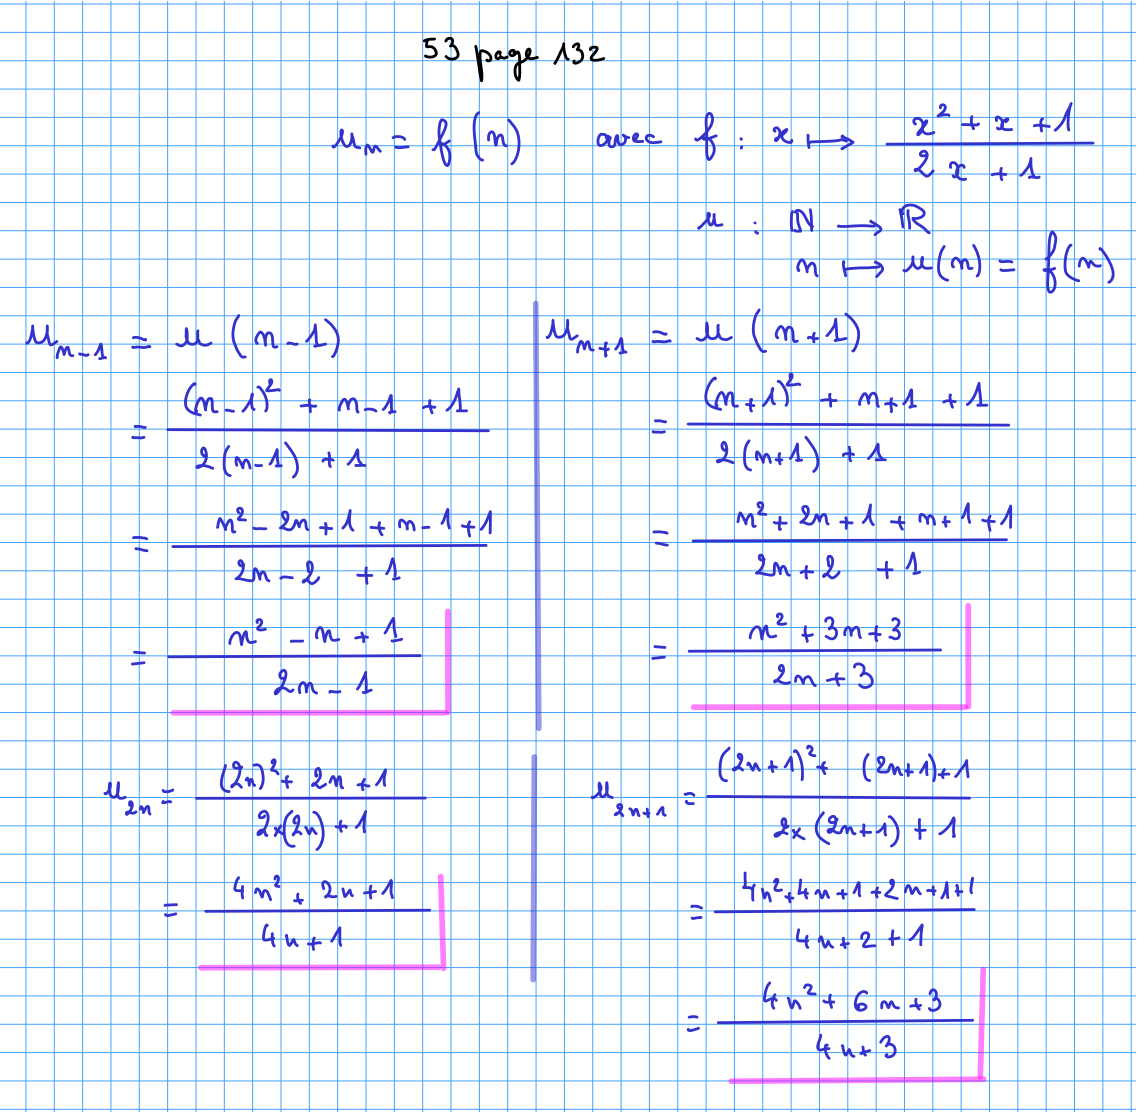 53 page 132
uₙ = f(n) avec f : x ⟼ (x² + x + 1)/(2x + 1)
u : ℕ ⟶ ℝ
n ⟼ u(n) = f(n)
uₙ₋₁ = u(n-1)
= ((n-1)² + n-1 + 1)/(2(n-1) + 1)
= (n² - 2n + 1 + n - 1 + 1)/(2n - 2 + 1)
= (n² - n + 1)/(2n - 1)
uₙ₊₁ = u(n+1)
= ((n+1)² + n+1 + 1)/(2(n+1) + 1)
= (n² + 2n + 1 + n + 1 + 1)/(2n + 2 + 1)
= (n² + 3n + 3)/(2n + 3)
u₂ₙ = ((2n)² + 2n + 1)/(2×(2n) + 1)
= (4n² + 2n + 1)/(4n + 1)
u₂ₙ₊₁ = ((2n+1)² + (2n+1) + 1)/(2×(2n+1) + 1)
= (4n² + 4n + 1 + 2n + 1 + 1)/(4n + 2 + 1)
= (4n² + 6n + 3)/(4n + 3)